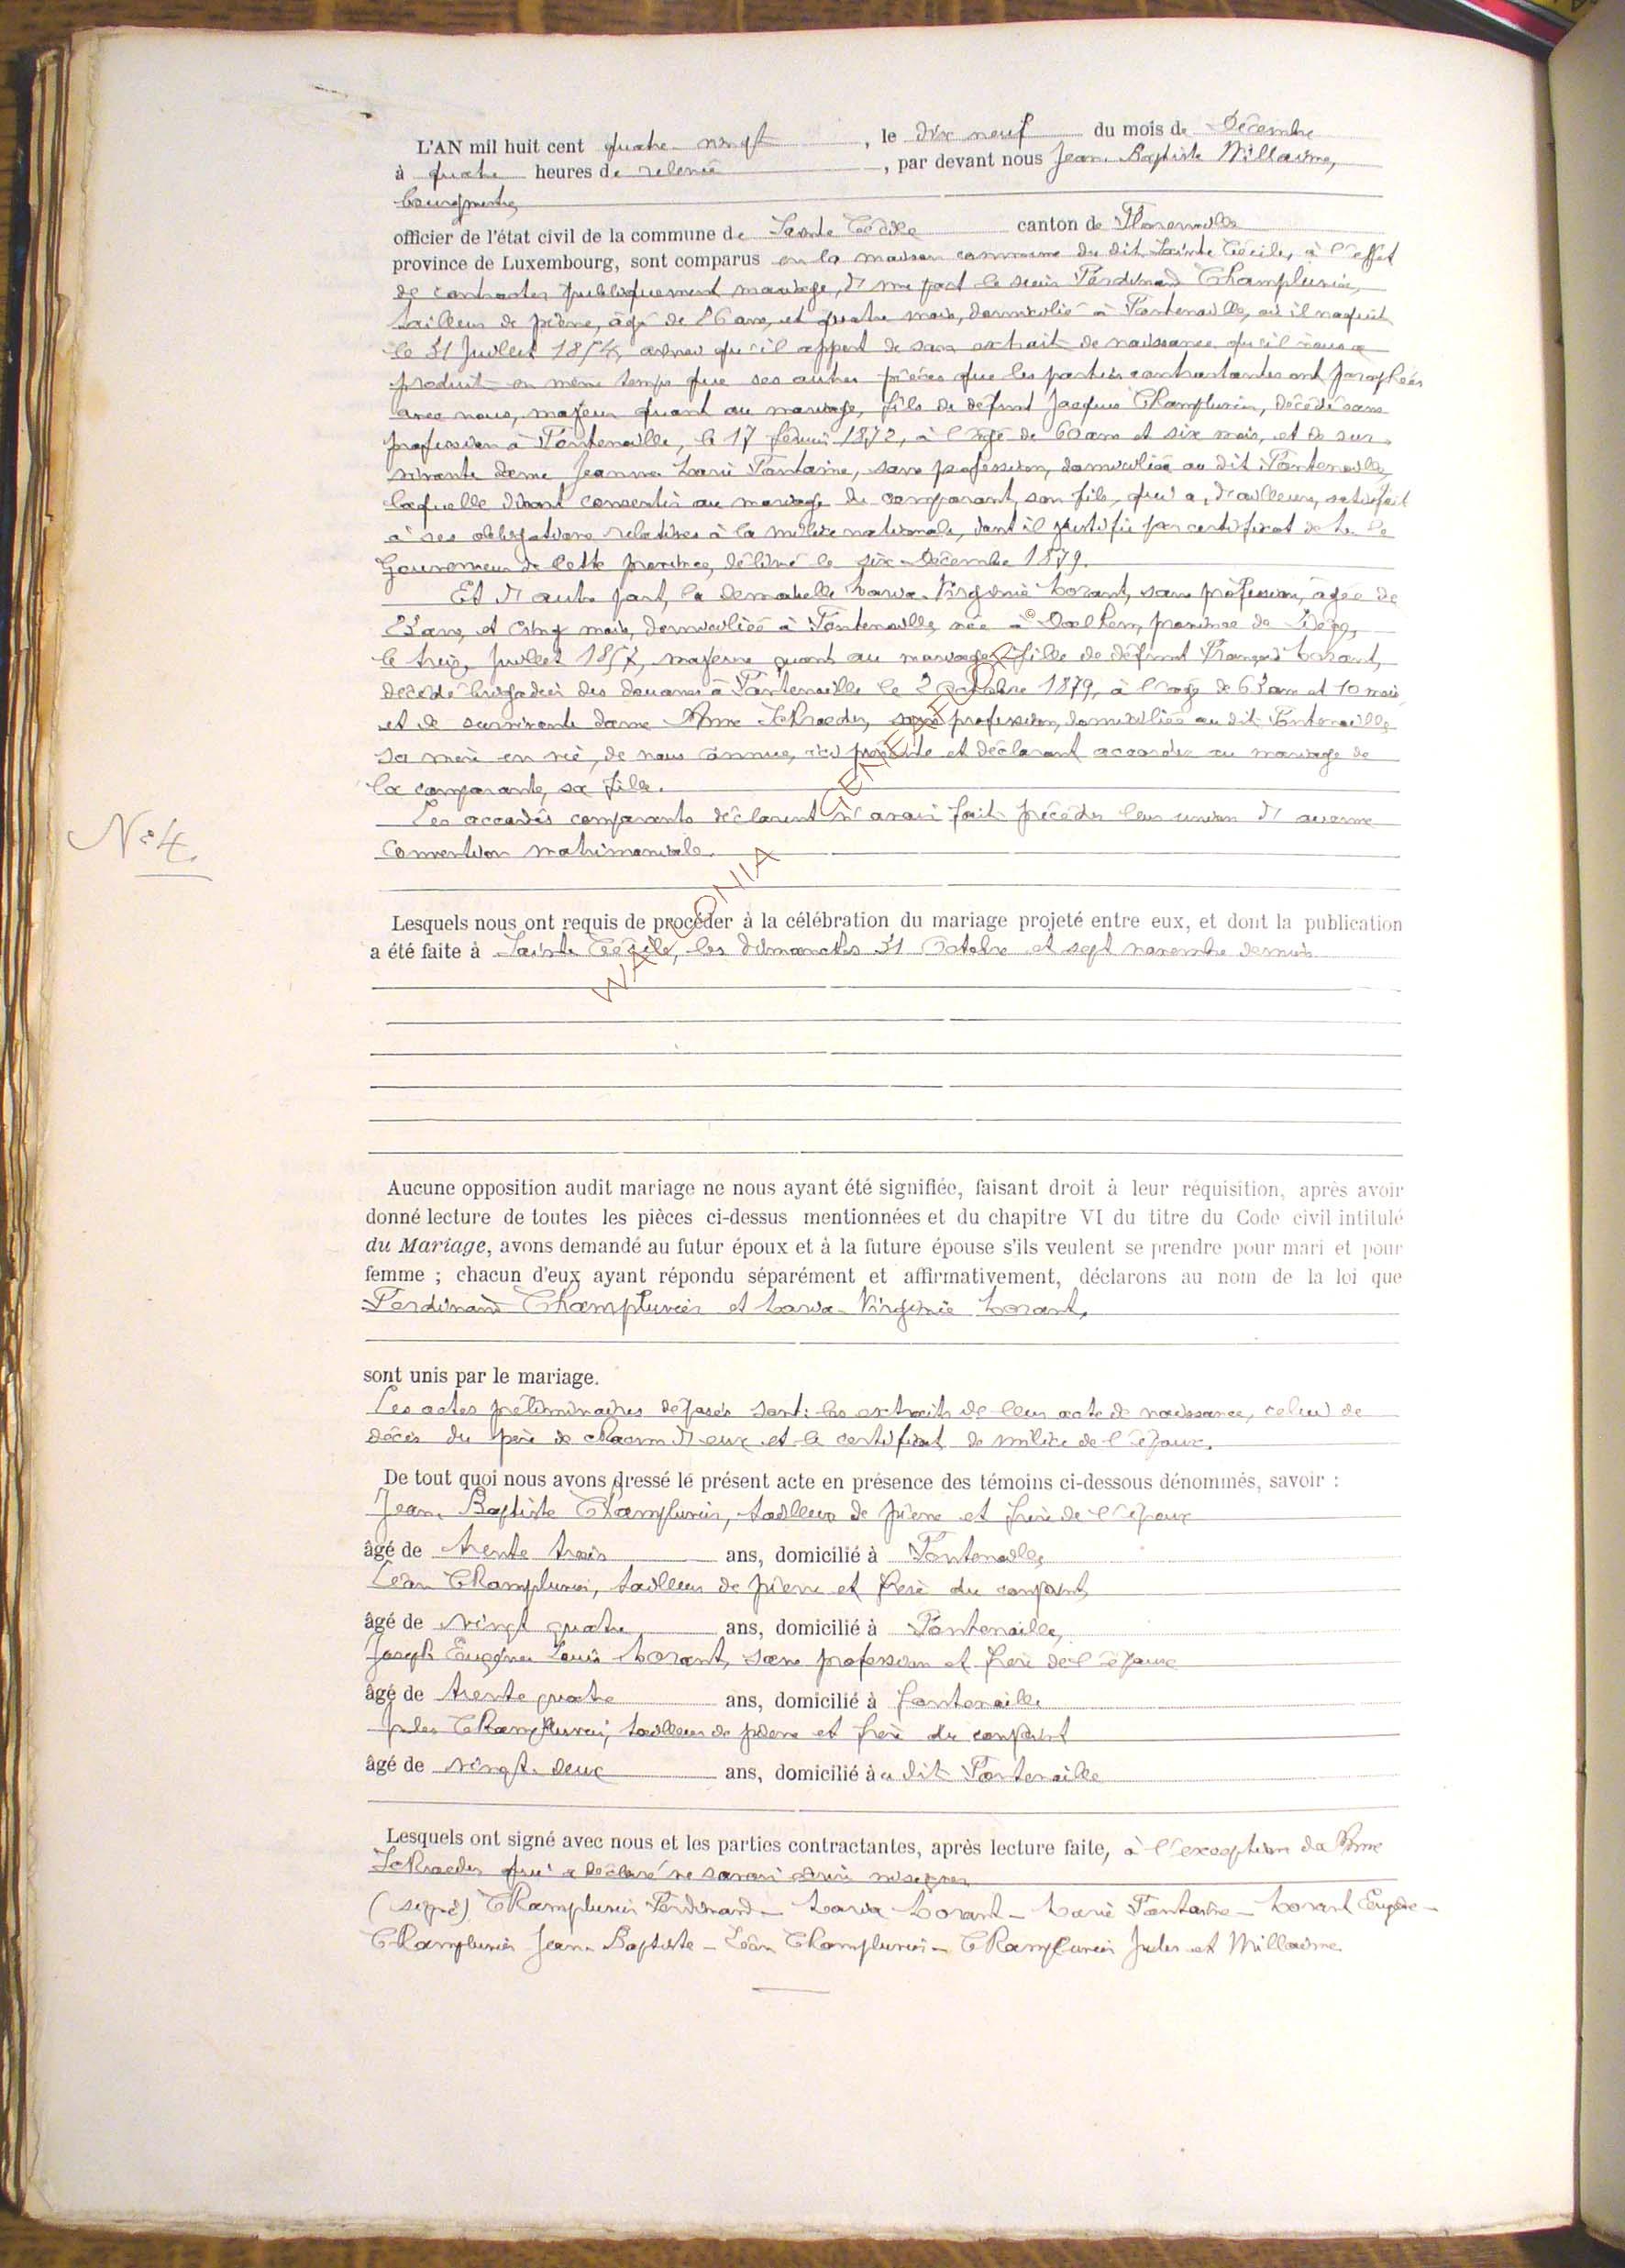 L'AN mil huit cent quatre vingt, le dix neuf du mois de Décembre
à quatre heures de relevée, par devant nous Jean Baptiste Willaime,
bourgmestre
officier de l'état civil de la commune de Sainte Cécile canton de Florenville
province de Luxembourg, sont comparus en la maison commune du dit Sainte Cécile, à l'effet
de contracter publiquement mariage, d'une part le sieur Ferdinand Champlurier,
tailleur de pierre, âgé de 26 ans, et quatre mois, domicilié à Fontenoille, où il naquit
le 31 Juillet 1854, ainsi qu'il appert de son extrait de naissance qu'il nous a
produit en même temps que ses autres pièces que les parties contractantes ont paraphées
avec nous, majeur quant au mariage, fils de défunt Jacques Champlurier, décédé sans
profession à Fontenoille, le 17 février 1872, à l'âge de 60 ans et six mois, et de sur-
vivante dame Jeanne Marie Fontaine, sans profession, domiciliée au dit Fontenoille,
laquelle disant consentir au mariage du comparant, son fils, qui a, d'ailleurs, satisfait
à ses obligations relatives à la milice nationale, dont il justifie par certificat de M. le
Gouverneur de cette province, délivré le six Décembre 1879.
Et d'autre part, la demoiselle Maria Virginie Morant, sans profession, âgée de
23 ans, et cinq mois, domiciliée à Fontenoille, née à Dalhem, province de Liège,
le treize Juillet 1857, majeure quant au mariage, fille de défunt François Morant,
décédé brigadier des douanes à Fontenoille le 2 octobre 1879, à l'âge de 63 ans et 10 mois
et de survivante dame Anne Schroeder, sans profession, domiciliée au dit Fontenoille,
sa mère en vie, de nous connue, ici présente et déclarant accorder au mariage de
la comparante, sa fille.
Les accordés comparants déclarent n'avoir fait précéder leur union d'aucune
convention matrimoniale.
N° 4.
© WALLONIA GENEALOGY
Lesquels nous ont requis de procéder à la célébration du mariage projeté entre eux, et dont la publication
a été faite à Sainte Cécile, les dimanches 31 Octobre et sept novembre derniers
Aucune opposition audit mariage ne nous ayant été signifiée, faisant droit à leur réquisition, après avoir
donné lecture de toutes les pièces ci-dessus mentionnées et du chapitre VI du titre du Code civil intitulé
du Mariage, avons demandé au futur époux et à la future épouse s'ils veulent se prendre pour mari et pour
femme ; chacun d'eux ayant répondu séparément et affirmativement, déclarons au nom de la loi que
Ferdinand Champlurier et Maria Virginie Morant,
sont unis par le mariage.
Les actes préliminaires déposés sont : les extraits de leur acte de naissance, celui de
décès du père de chacun d'eux et le certificat de milice de l'époux.
De tout quoi nous avons dressé le présent acte en présence des témoins ci-dessous dénommés, savoir :
Jean Baptiste Champlurier, tailleur de pierre et frère de l'époux
âgé de trente trois ans, domicilié à Fontenoille,
Léon Champlurier, tailleur de pierre et frère du conjoint
âgé de vingt quatre ans, domicilié à Fontenoille,
Joseph Eugène Louis Morant, sans profession et frère de l'épouse
âgé de trente quatre ans, domicilié à Fontenoille
Jules Champlurier, tailleur de pierre et frère du conjoint
âgé de vingt-deux ans, domicilié à u dit Fontenoille
Lesquels ont signé avec nous et les parties contractantes, après lecture faite, à l'exception de Anne
Schroeder qui a déclaré ne savoir écrire ni signer
(signé) Champlurier Ferdinand - Maria Morant - Marie Fontaine - Morant Eugène -
Champlurier Jean Baptiste - Léon Champlurier - Champlurier Jules et Willaime